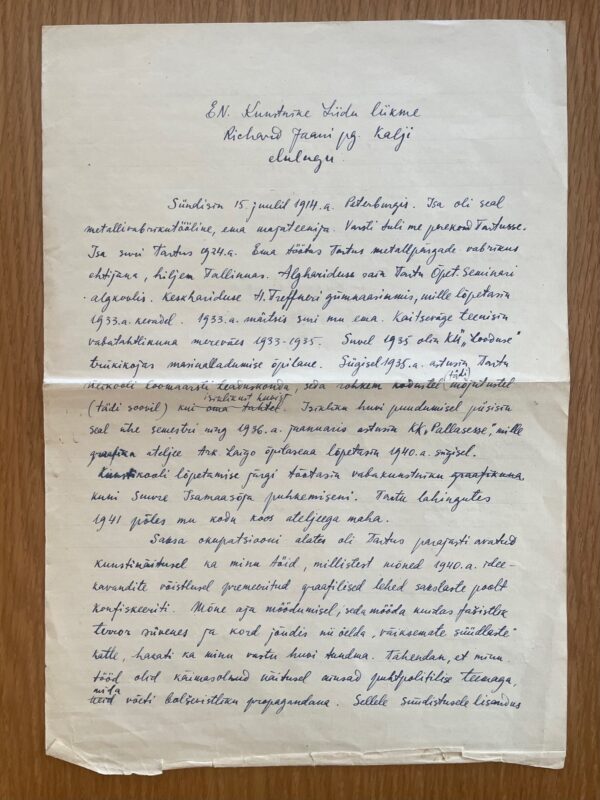 EN. Kunstnike Liidu liikme
Richard Jaani pg. Kalji
elulugu.
Sündisin 15. juulil 1914. a. Peterburgis. Isa oli seal
metallivabrikutööline, ema majateenija. Varsti tuli me perekond Tartusse.
Isa suri Tartus 1924. a. Ema töötas Tartus metallpärgade vabrikus
ehtijana, hiljem Tallinnas. Alghariduse sain Tartu Õpet. Seminari
algkoolis. Keskhariduse H. Treffneri gümnaasiumis, mille lõpetasin
1933. a. kevadel. 1933. a. märtsis suri mu ema. Kaitseväge teenisin
vabatahtlikuna mereväes 1933-1935. Suvel 1935 olin KÜ „Looduse"
trükikojas masinalladumise õpilane. Sügisel 1935. a. astusin Tartu
Ülikooli loomaarsti teaduskonda, seda rohkem kodustel (tädi) mõjutustel
(tädi soovil) kui oma tahtel isiklikust huvist. Isikliku huvi puudumisel püsisin
seal ühe semestri ning 1936. a. jaanuaris astusin KK „Pallasesse", mille
graafika ateljee Ark. Laigo õpilasena lõpetasin 1940. a. sügisel.
Kunstikooli lõpetamise järgi töötasin vabakunstniku graafikuna
kuni Suure Isamaasõja puhkemiseni. Tartu lahingutes
1941 põles mu kodu koos ateljeega maha.
Saksa okupatsiooni alates oli Tartus parajasti avatud
kunstinäitusel ka minu töid, millistest mõned 1940. a. idee-
kavandite võistlusel premeeritud graafilised lehed sakslaste poolt
konfiskeeriti. Mõne aja möödumisel, seda mööda kuidas fašistlik
terror süvenes ja kord jõudis nii öelda „väiksemate süüdlaste"
kätte, hakati ka minu vastu huvi tundma. Tähendan, et minu
tööd olid käimasolnud näitusel ainsad puhtpoliitilise teemaga,
neid mida võeti bolševistliku propagandana. Sellele süüdistusele lisandus